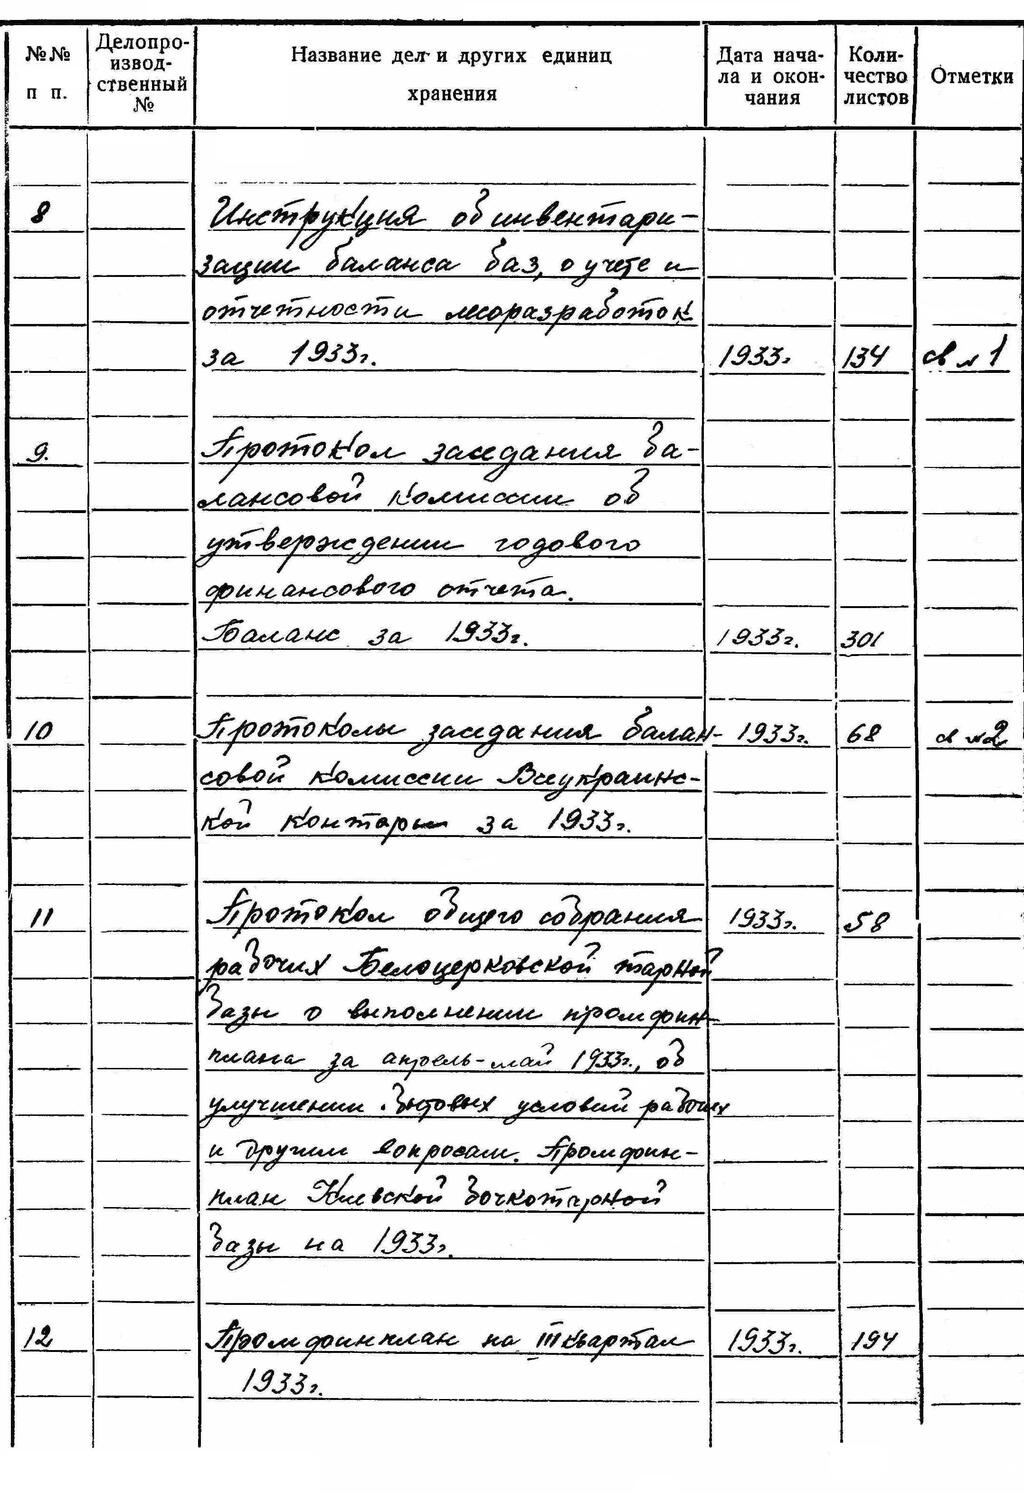 №№ п п. Делопроизводственный № Название дел и других единиц хранения Дата начала и окончания Количество листов Отметки
8 Инструкция об инвентари-
зации баланса баз, о учете и
отчетности лесоразработок
за 1933г. 1933г 134 св №1
9. Протокол заседания ба-
лансовой комиссии об
утверждении годового
финансового отчета.
Баланс за 1933г. 1933г. 301
10 Протоколы заседания балан- 1933г. 68 св №2
совой комиссии Всеукраинс-
кой конторы за 1933г.
11 Протокол общего собрания 1933г. 58
рабочих Белоцерковской тарной
базы о выполнении промфин-
плана за апрель-май 1933г., об
улучшении бытовых условий рабочих
и другим вопросам. Промфин-
план Киевской бочкотарной
базы на 1933г.
12 Промфинплан на III квартал 1933г. 194
1933г.